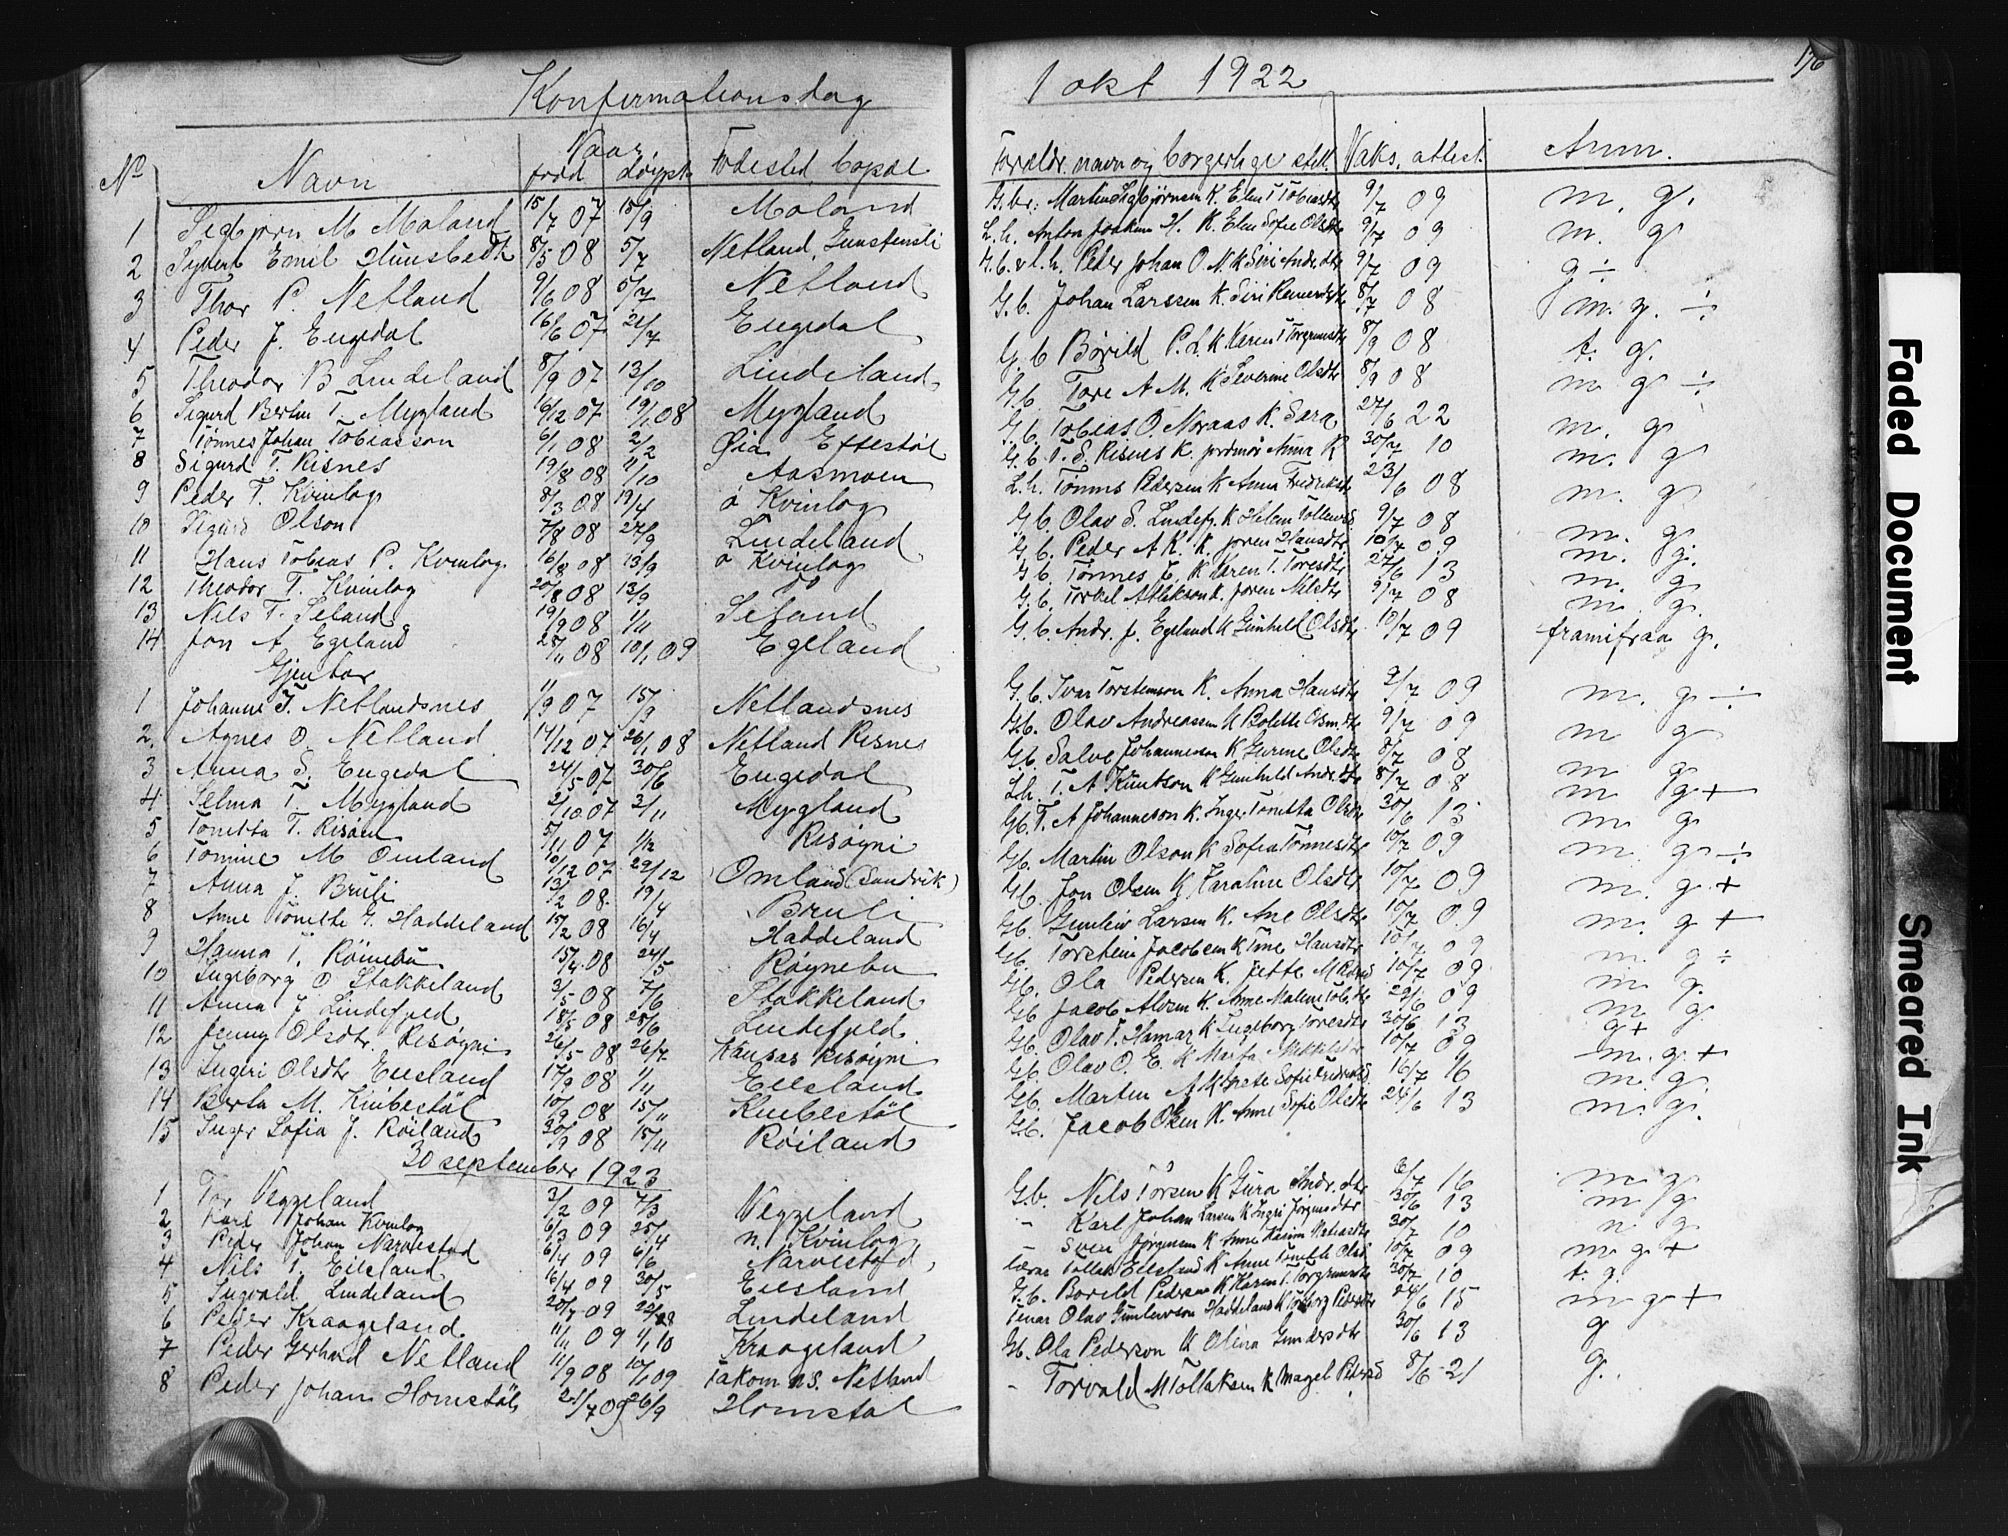 176
Konfirmationsdag 1 okt 1922
No Navn Naar født døypt Fodested, bopæl Foreldr. navn og borgerlige still. Vaks. attest. Anm.
1 Sigbjørn M Moland 15/7 07 15/9 Moland G.br. Martin Sigbjørnsen K. Elen T Tobiasdtr 9/7 09 m. g.
2 Sigbert Emil Hunsbedt 8/5 08 5/7 Netland, L.h. Anton Joakim H. K. Elen Sofie Olsdtr 9/7 09 m. g
3 Thor P. Netland 9/6 08 5/7 Netland G.b. & l.h. Peder Johan O. N. K Siri Andr.dtr 9/7 09 g ÷
4 Peder J. Eugedal 16/6 07 21/7 Eugedal G.b. Johan Larssen K. Siri 8/7 08 m. g. ÷
5 Theodor B Lindeland 8/9 07 13/10 Lindeland G.b Børild P. L. K Karen T Torgrimsdtr 8/9 08 t. g.
6 Sigurd Bertin T. Mygland 6/12 07 19/1 08 Mygland G.b. Tore A M. K Severine Olsdtr 8/9 08 m g ÷
7 Tønnes Johan Tobiasson 6/1 08 2/2 Øia Eftestøl G.b. Tobias O. Noraas K. Sara 27/6 22 m. g
8 Sigurd T. Risnes 19/8 08 11/10 Aasmoen G.b. T. S. Risnes K. Anna K 30/7 10 m. g
9 Peder T. Kvinlog 8/3 08 19/4 o Kvinlog L.h. Tønnes Pedersen K Anna Fredriksdtr 23/6 08 m. g
10 Sigurd Olson 7/8 08 27/9 Lindeland G.b. Olav S. Lindefj. K Helene Tollevsd. 9/7 08 m. g.
11 Hans Tobias P. Kvinlog 16/8 08 13/9 o Kvinlog G.b. Peder A K. K. Joren Hansdtr 10/7 09 m. g.
12 Theodor T. Kvinlog 20/8 08 13/9 do G.b. Tønnes J. K Karen T. Toresdtr 27/6 13 m. g
13 Nils T. Seland 19/9 08 1/11 Seland G.b. Torkel Atlakson K. Joren Nilsdtr 9/7 08 m. g.
14 Jon A. Egeland 25/11 08 10/1 09 Egeland G.b. Andr. J. Egeland K Gunhild Olsdtr 10/7 09 framifraa g.
Gjentor
1 Johanne I. Netlandsnes 11/9 07 15/9 Netlandsnes G.b. Ivar Torstenson K. Anna Hansdtr 9/7 09 m. g ÷
2. Agnes O. Netland 14/12 07 26/1 08 Netland Risnes G.b. Olav Andreassen K Bolette Olsmdtr 9/7 09 m g
3 Anna S. Eugedal 24/5 07 30/6 Eugedal G.b. Salve Johannesson K Gurine Olsdtr 8/7 08 m g
4 Selma T. Mygland 2/10 07 3/11 Mygland L.h. T. A Knutson K Gunhild Andr.dtr 8/7 08 m g +
5 Tonetta T. Risøen 5/11 07 1/12 Risøyni G.b. T. A Johanneson K. Inger Tonetta Olsdtr 30/6 13 m. g
6 Tomine M Omland 10/12 07 29/12 Omland (Sandvik) G.b. Martin Olson K Sofia Tønnesdtr 10/7 09 m. g ÷
7 Anna J. Bruli 13/2 08. 19/4 Bruli G.b. Jon Olsen K. Karoline Olsdtr 10/7 09 m. g. +
8 Anne Tonette G. Haddeland 15/2 08 16/4 Haddeland G.b. Gunleiv Larsen K. Ane Olsdtr 10/7 09 m. g +
9 Hanna T. Røinebu 15/4 08 24/5 Røynebu G.b. Torstein Jacobsen K Tine Hansdtr 10/7 09 m. g ÷
10 Ingeborg O Stakkeland 3/5 08 7/6 Stakkeland G.b. Ola Pedersen K. Jette 10/7 09 m. g.
11 Anna J Lindefjeld 18/5 08 28/6 Lindefjeld G.b Jacob Alvsen K. Anne Malene Tob.dtr 29/6 09 m g.
12 Jenny Olsdtr. Risøyni 26/5 08 26/7 Risøyni G.b. Olav T. Homar K Ingeborg Toresdtr 30/6 13 g +
13 Ingeri Olsdtr Eiesland 17/9 08 1/11 Eiesland G.b. Olav O. E. K Marta Mikkelsdtr 10/7 09 m. g. +
14 Berta M. Knibestøl 10/9 08 15/11 Knibestøl G.b. Martin A K Sofie 16/7 16 m. g.
15 Inger Sofia J. Røiland 30/9 08 15/11 Røiland G.b. Jacob Olsen K. Anne Sofie Olsdtr 24/6 13 m. g.
30 september 1923
1 Tor Veggeland 3/2 09 7/3 Veggeland G.b. Nils Torsen K Gura Andr.dtr 6/7 16 m. g
2 Karl Johan Kvinlog 6/3 09 25/4 n. Kvinlog - Karl Johan Larsen K Ingri Jørgensdtr 30/6 13 m g
3 Peder Johan Narvestad 6/4 09 6/6 Narvestad - Sven Jørgensen K Anne 30/7 10 n g
4 Nils T. Eiesland 16/4 09 30/5 Eiesland Lærar Tollak Eiesland K Anne Tonette Olsd. 10/7 09 m. g. +
5 Ingvald Lindeland 20/7 09 Lindeland G.b. Børild Pedersen K Karen T. Torgrimsdtr 30/7 10 t. g.
6 Peder Kraageland 11/11 09 1/1 10 Kraageland Tenar Olav Gunleivson Haddeland K Torborg Pedersdtr 24/6 15 m g +
7 Peder Gerhard Netland 11/9 08 10/1 09 Netland G.b. Ola Pederson K Olina Gundersdtr 30/6 13 g
8 Peder Johan Homstøl 21/7 09 26/9 Homstøl - Torvald M Tollaksen K Magel Pedersd 8/6 21 g.
Faded Document
Smeared Ink